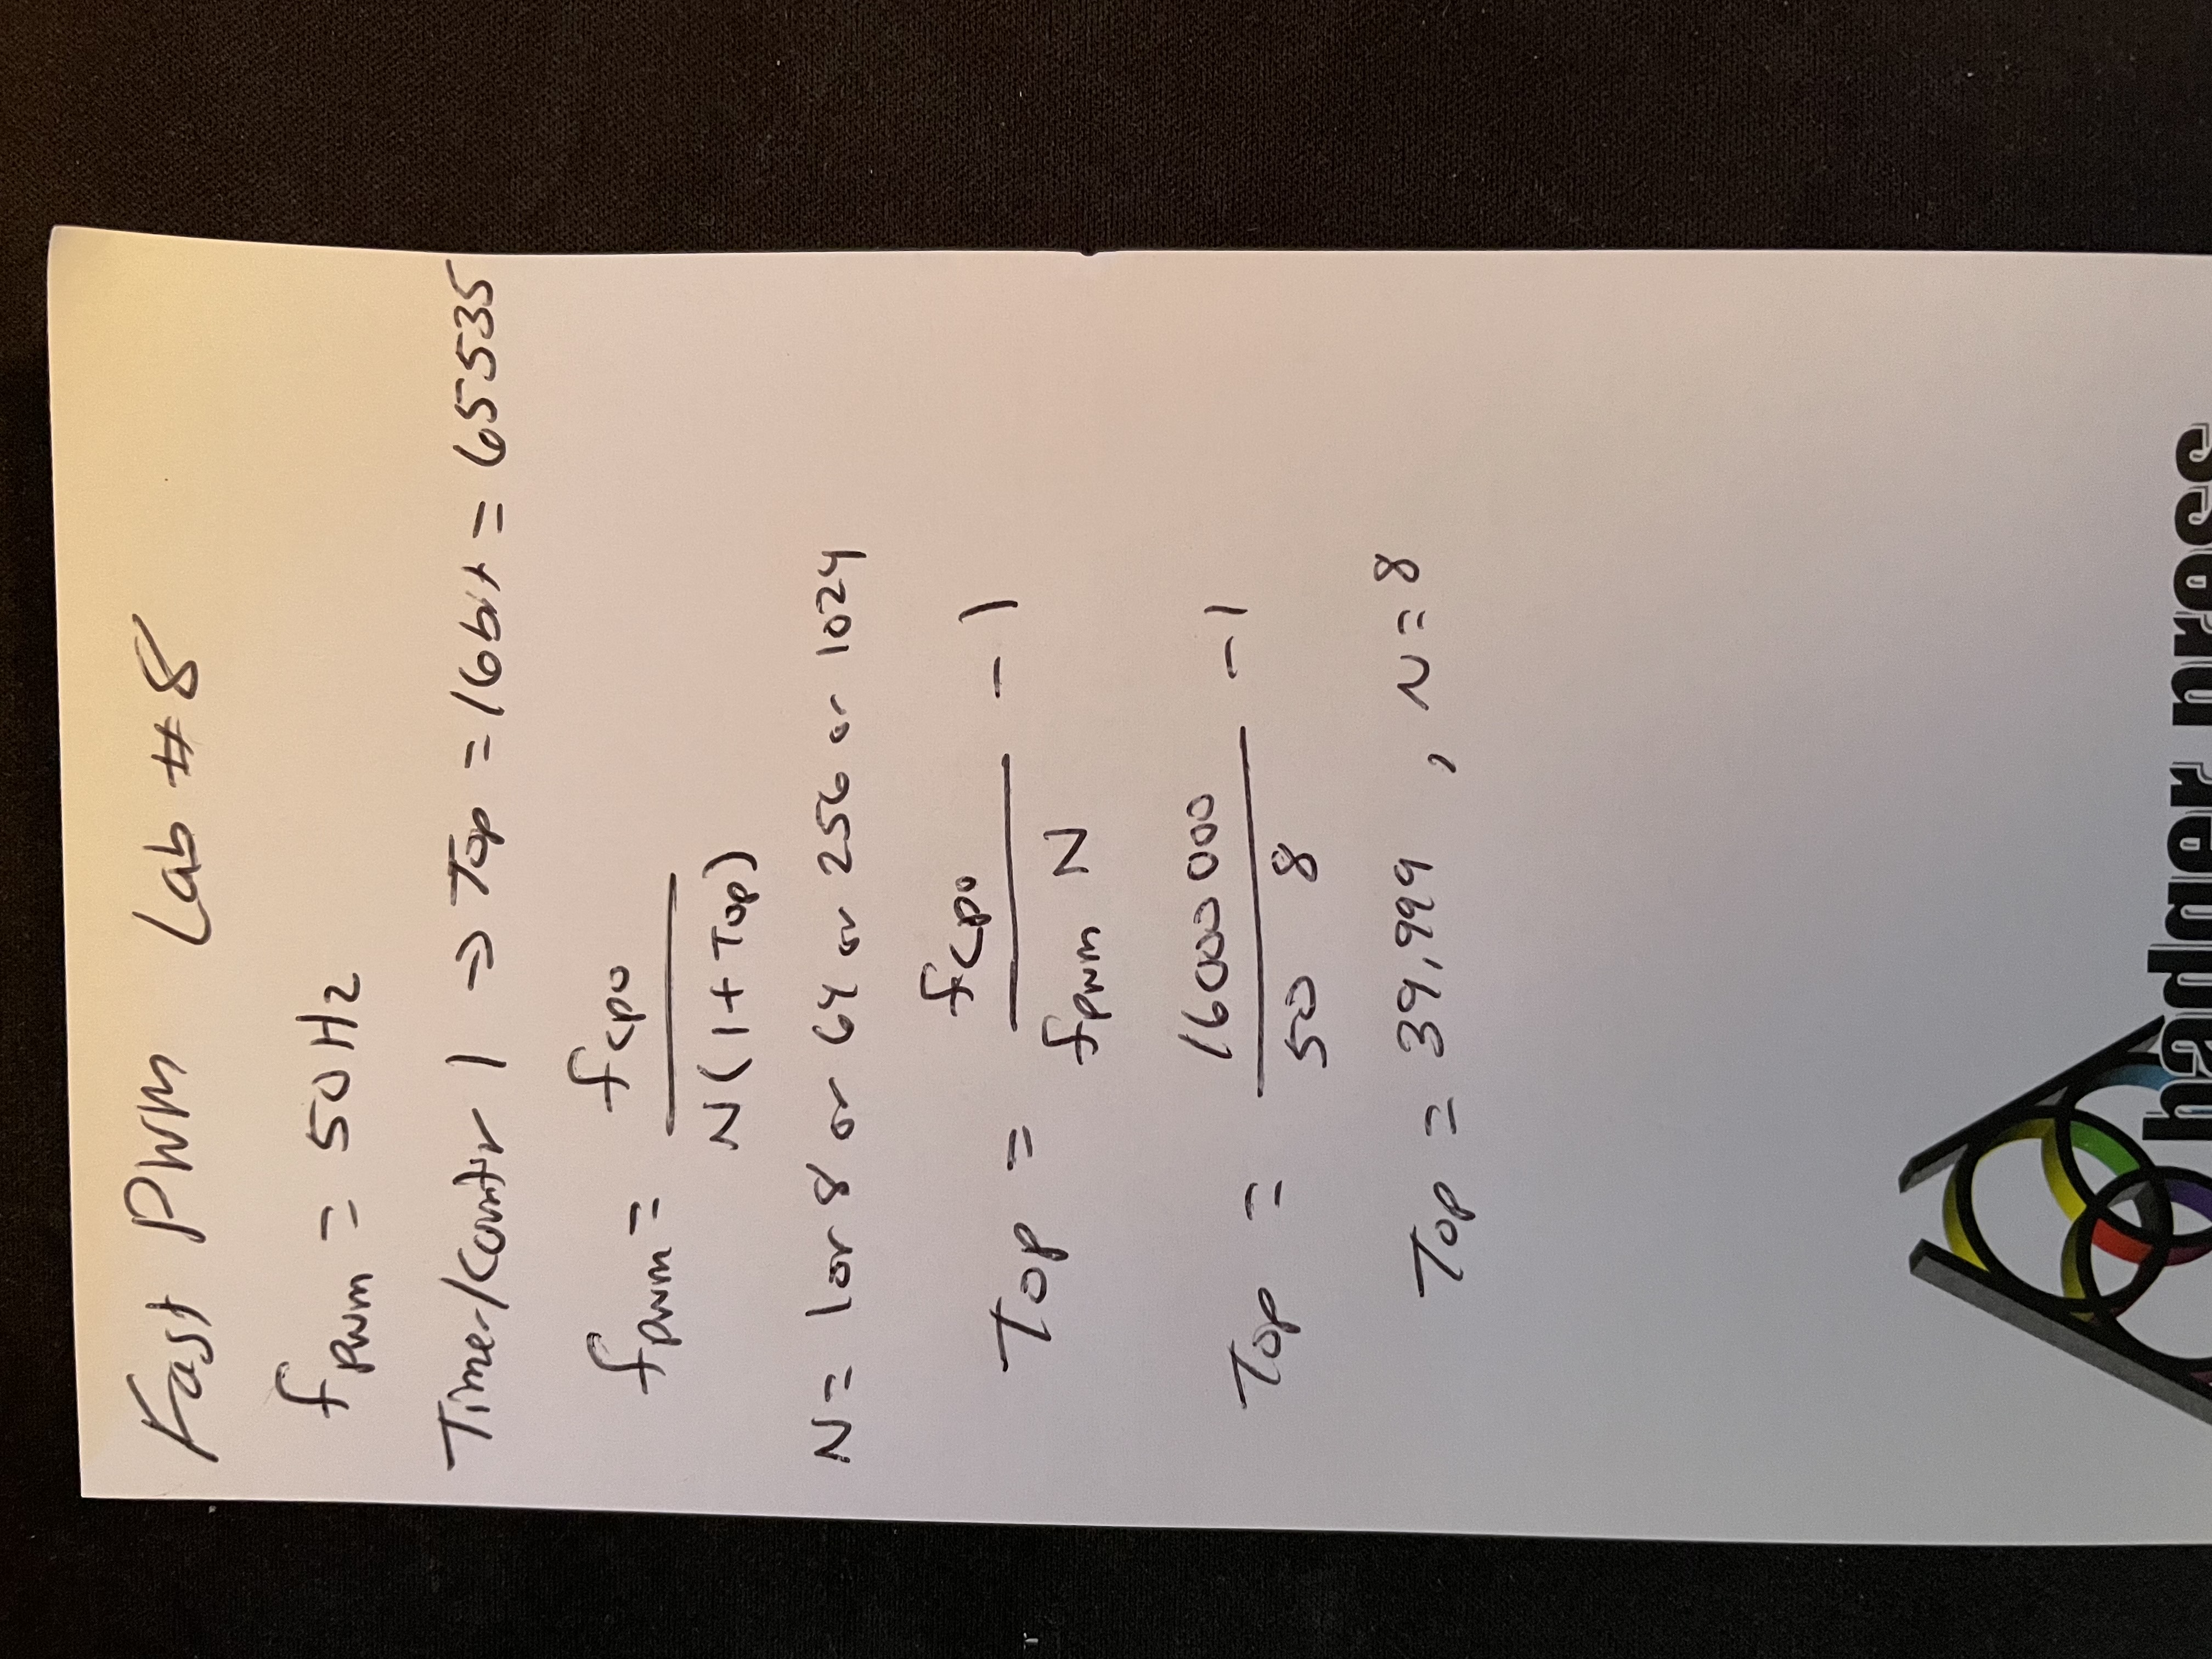 Fast PWM Lab #8
fpwm = 50Hz
Timer/Counter 1 => Top = 16bit = 65535
fpwm = fcpu / N(1 + Top)
N = 1 or 8 or 64 or 256 or 1024
Top = fcpu / fpwm N - 1
Top = 16000 000 / 50 8 - 1
Top = 39,999 , N = 8
badger press